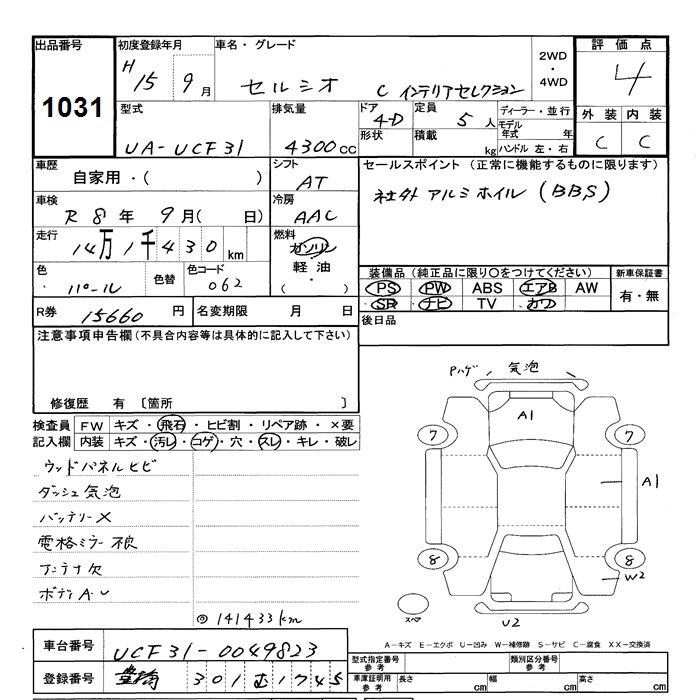 出品番号
1031
初度登録年月
H 15 9 月
車名・グレード
セルシオ C インテリアセレクション
2WD
・
4WD
評価点
4
外装 内装
C C
型式
UA-UCF31
排気量
4300 CC
ドア
4-D
形状
定員
5 人
積載
kg
ディーラー・並行
モデル年式 年
ハンドル 左・右
車歴
自家用・( )
シフト
AT
車検
R 8 年 9 月( 日)
冷房
AAC
走行
14万1千430 km
燃料
ガソリン
軽油
( ・ )
色
パール
色替
色コード
062
R券
15660 円
名変期限 月 日
セールスポイント (正常に機能するものに限ります)
社外アルミホイル (BBS)
装備品 (純正品に限り○をつけてください)
PS PW ABS エアB AW
SR ナビ TV カワ
新車保証書
有・無
後日品
注意事項申告欄 (不具合内容等は具体的に記入して下さい)
修復歴 有 〔箇所 〕
検査員
記入欄
FW キズ・飛石・ヒビ割・リペア跡・×要
内装 キズ・汚レ・コゲ・穴・スレ・キレ・破レ
ウッドパネルヒビ
ダッシュ気泡
バッテリーX
電格ミラー不良
アンテナ欠
ボディA・U
◎141433km
Pハゲ 気泡
A1
7 7
A1
8 8
W2
スペア
U2
A−キズ E−エクボ U−凹み W−補修跡 S−サビ C−腐食 XX−交換済
車台番号
UCF31-0049823
登録番号
豊橋 301 む 1745
型式指定番号
参考
類別区分番号
参考
車庫証明用
参考
長さ cm
幅 cm
高さ cm